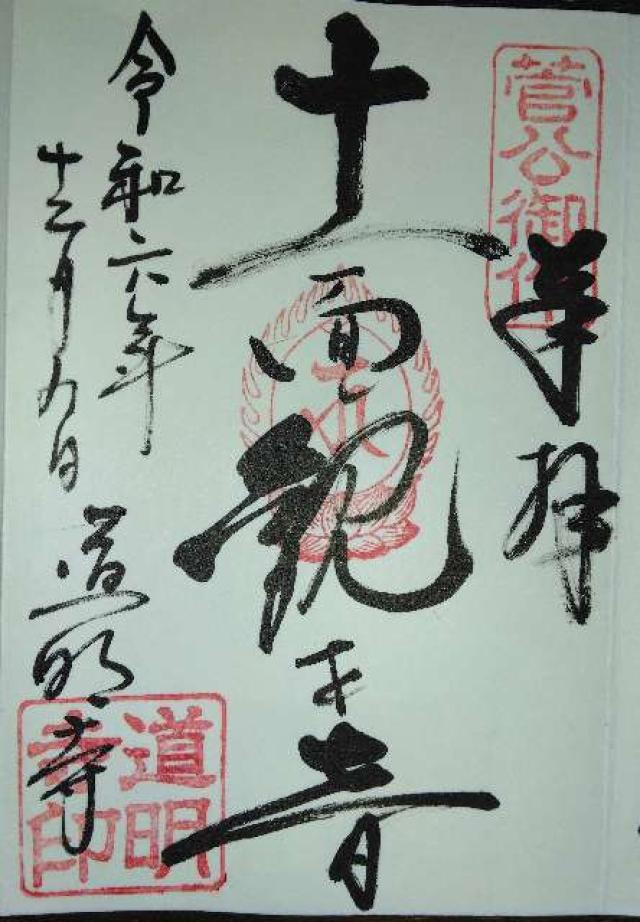 菅公御作
奉拝
十一面観世音
令和六年
十二月九日
道明寺
道明寺印